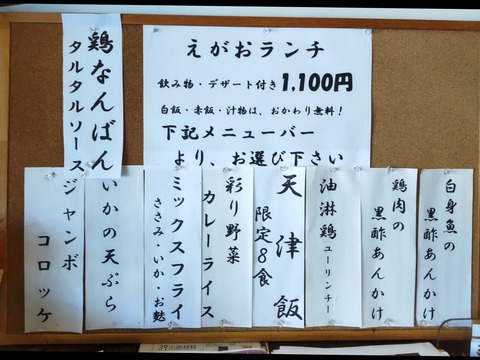 えがおランチ
飲み物・デザート付き1,100円
白飯・赤飯・汁物は、おかわり無料！
下記メニューバー
より、お選び下さい
白身魚の
黒酢あんかけ
鶏肉の
黒酢あんかけ
油淋鶏ユーリンチー
天津飯
限定8食
彩り野菜
カレーライス
ミックスフライ
ささみ・いか・お麩
いかの天ぷら
ジャンボ
コロッケ
鶏なんばん
タルタルソース